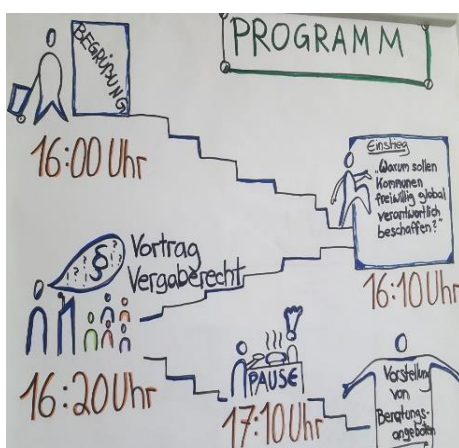 PROGRAMM
BEGRÜßUNG
16:00 Uhr
Einstieg
"Warum sollen
Kommunen
freiwillig global
verantwortlich
beschaffen?"
16:10 Uhr
§
Vortrag
Vergaberecht
16:20 Uhr
PAUSE
17:10 Uhr
Vorstellung
von
Beratungs-
angeboten